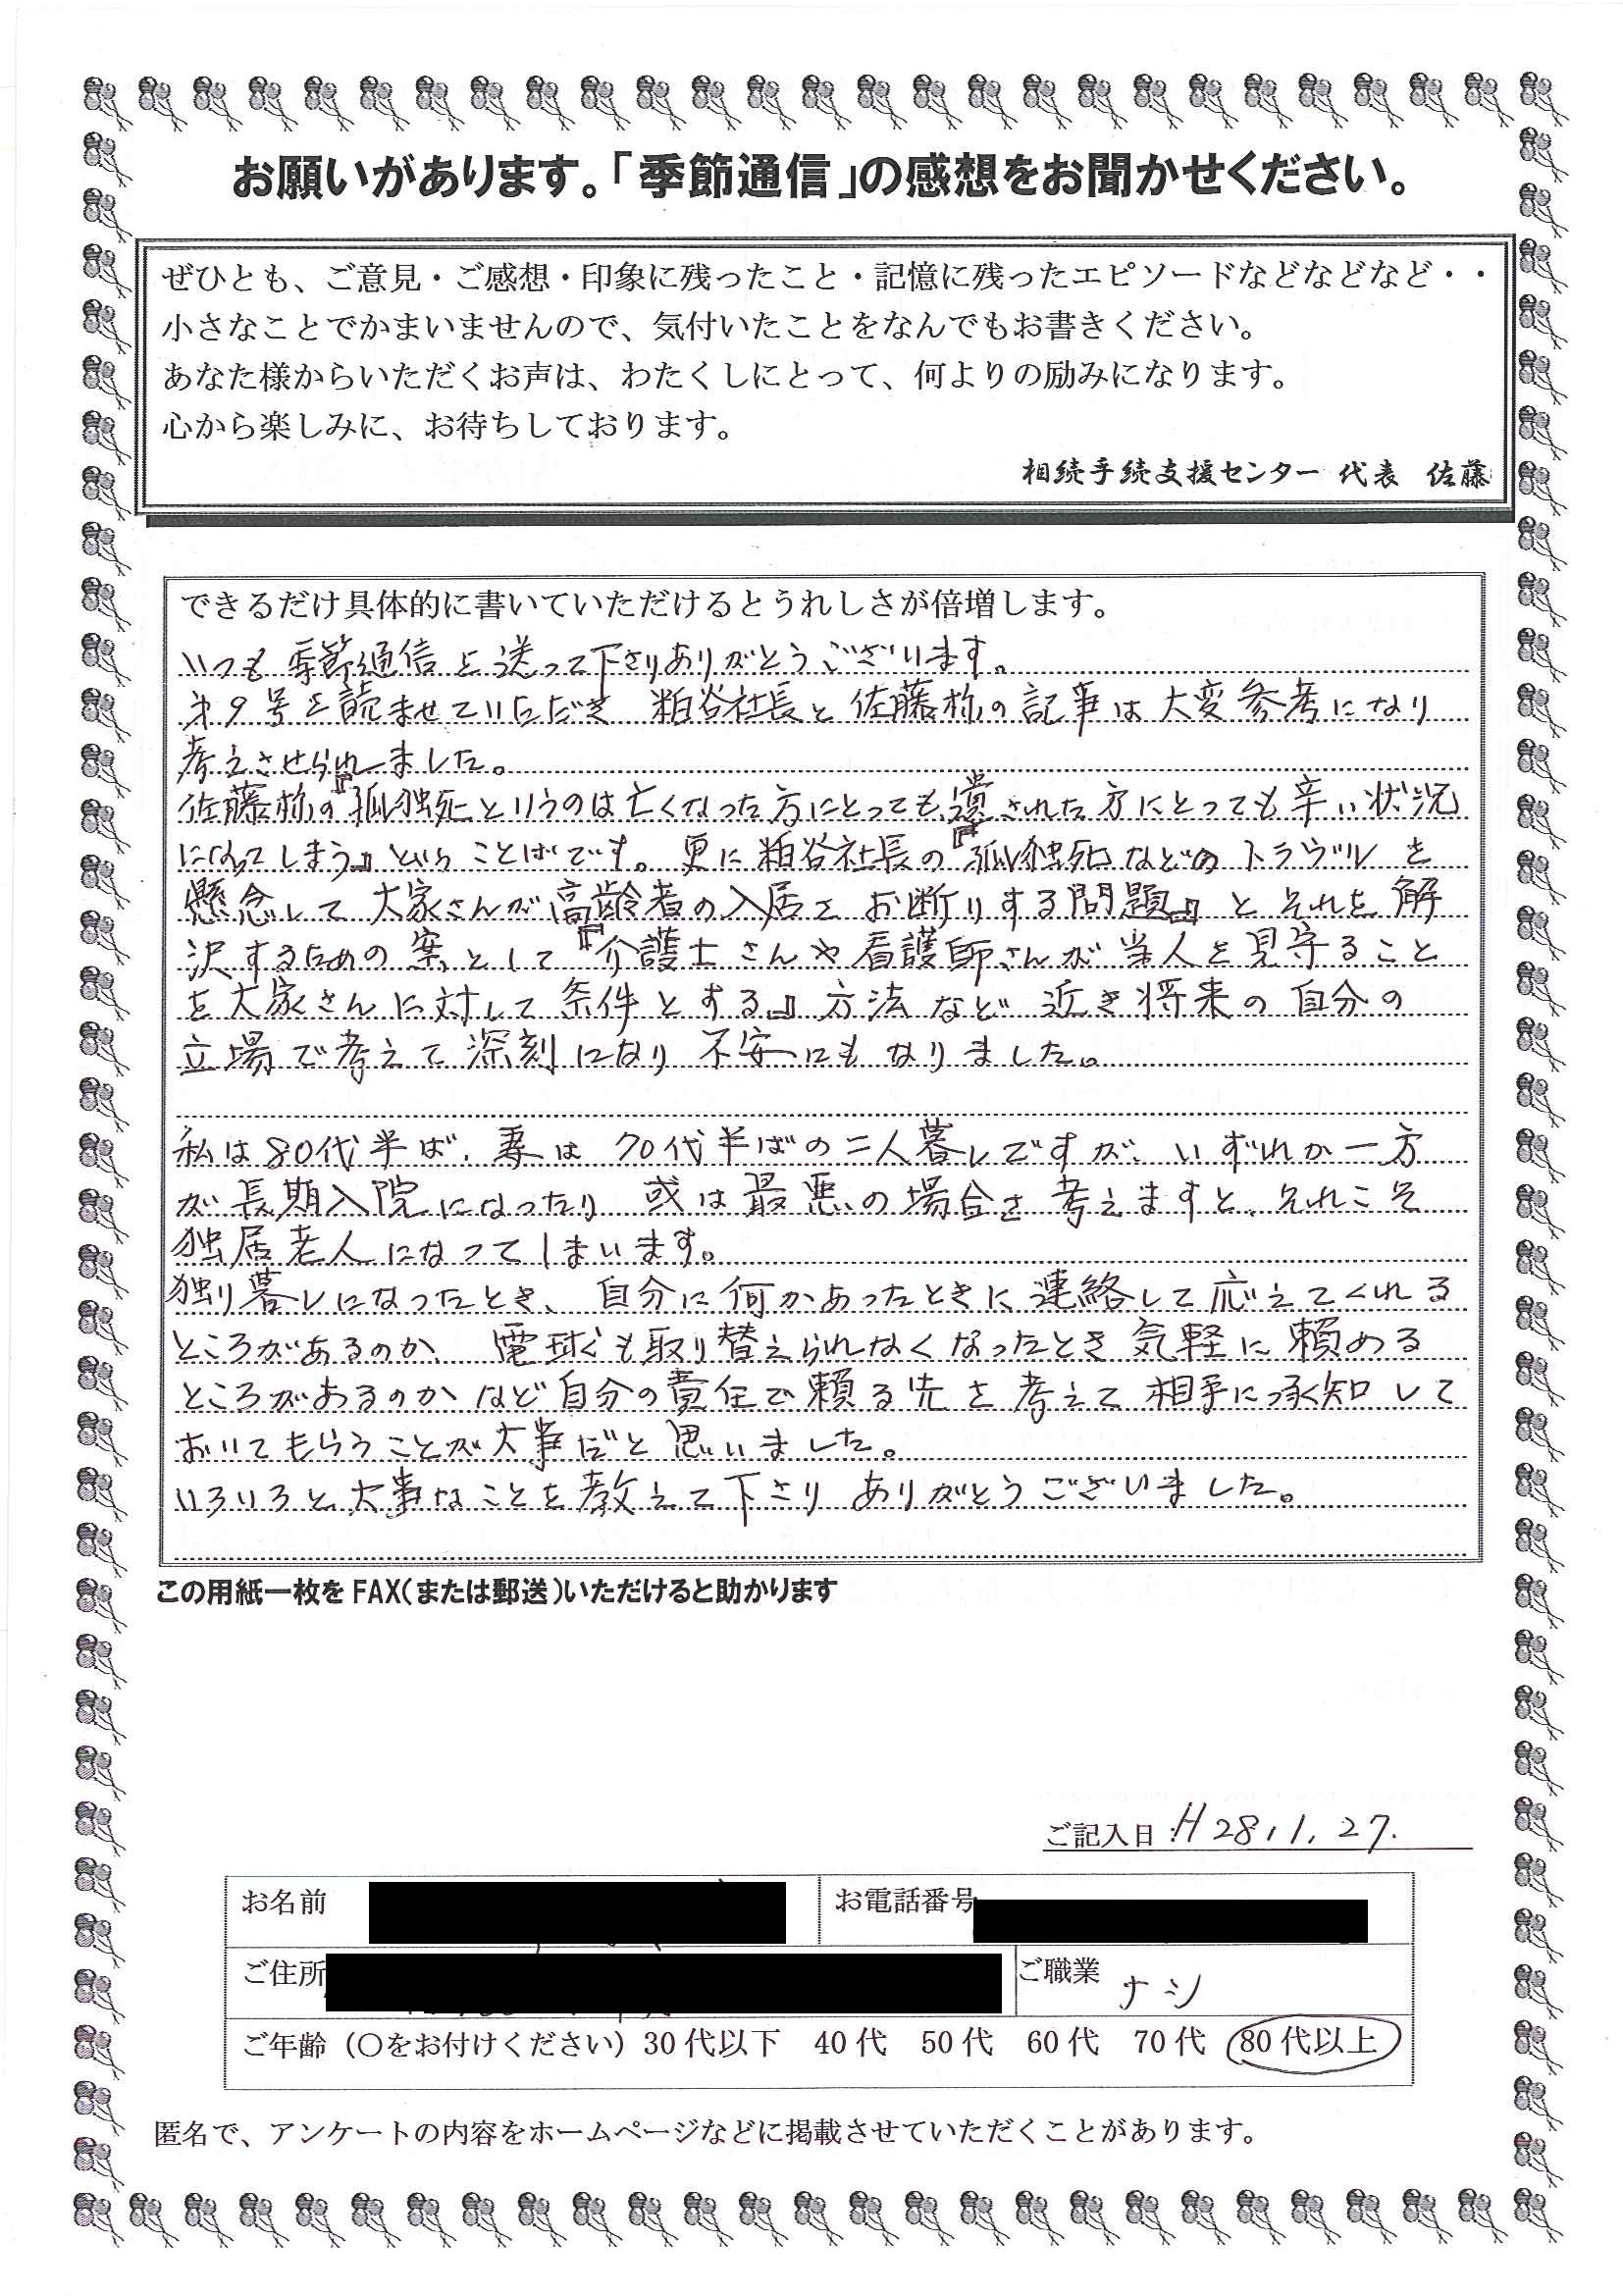 お願いがあります。「季節通信」の感想をお聞かせください。
ぜひとも、ご意見・ご感想・印象に残ったこと・記憶に残ったエピソードなどなどなど・・
小さなことでかまいませんので、気付いたことをなんでもお書きください。
あなた様からいただくお声は、わたくしにとって、何よりの励みになります。
心から楽しみに、お待ちしております。
相続手続支援センター 代表 佐藤
できるだけ具体的に書いていただけるとうれしさが倍増します。
いつも季節通信を送って下さりありがとうございます。
㐧9号を読ませていただき 粕谷社長と佐藤様の記事は大変参考になり
考えさせられました。
佐藤様の『孤独死というのは亡くなった方にとっても、遺された方にとっても辛い状況
になってしまう』ということばです。更に粕谷社長の『孤独死などのトラブルを
懸念して大家さんが高齢者の入居をお断りする問題』とそれを解
決するための案として『介護士さんや看護師さんが当人を見守ること
を大家さんに対して条件とする』方法など近き将来の自分の
立場で考えて深刻になり不安にもなりました。
私は80代半ば、妻は70代半ばの二人暮しですが、いずれか一方
が長期入院になったり 或は最悪の場合を考えますと、それこそ
独居老人になってしまいます。
独り暮しになったとき、自分に何かあったときに連絡して応えてくれる
ところがあるのか、電球も取り替えられなくなったとき気軽に頼める
ところがあるのかなど自分の責任で頼る先を考えて相手に承知して
おいてもらうことが大事だと思いました。
いろいろと大事なことを教えて下さり ありがとうございました。
この用紙一枚をFAX(または郵送)いただけると助かります
ご記入日:H28.1.27.
お名前 お電話番号
ご住所 ご職業 ナシ
ご年齢（○をお付けください）30代以下 40代 50代 60代 70代 80代以上
匿名で、アンケートの内容をホームページなどに掲載させていただくことがあります。